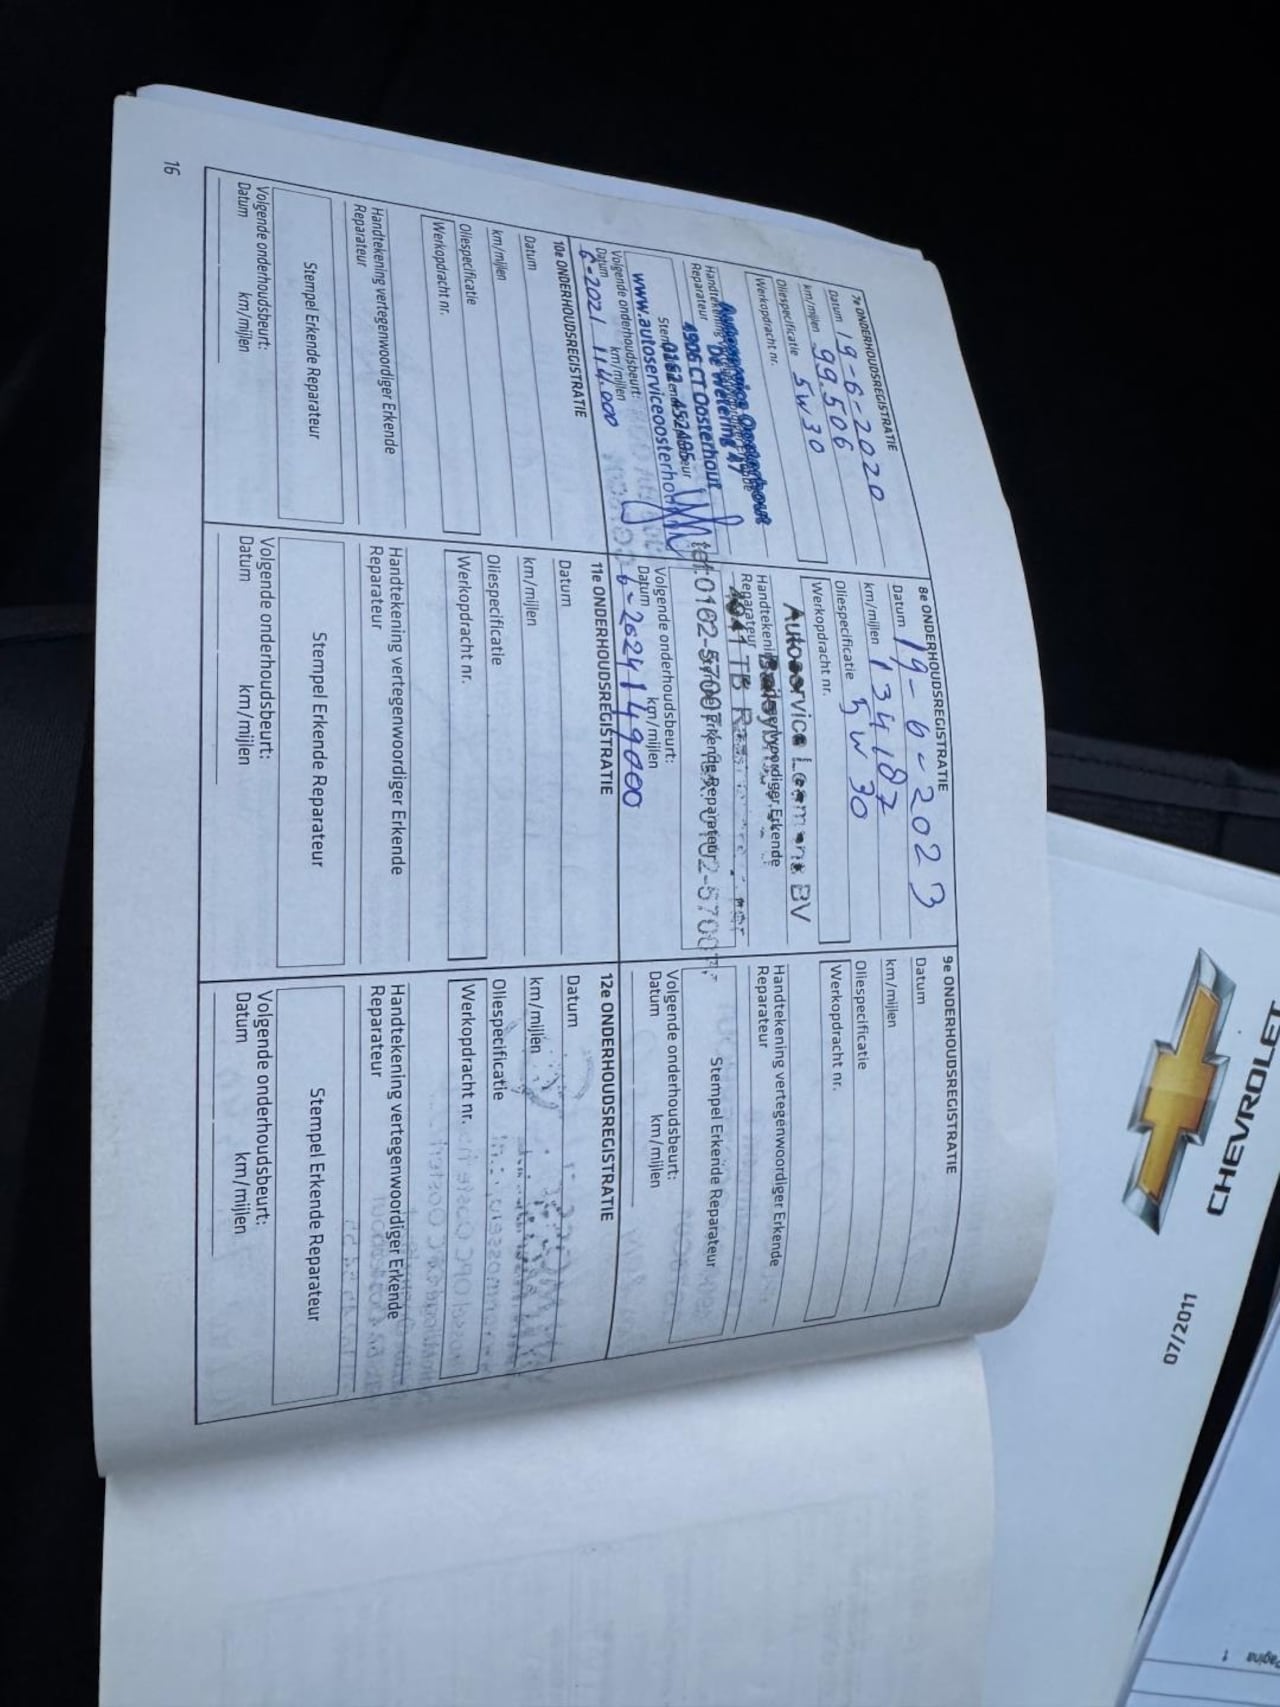 7e ONDERHOUDSREGISTRATIE
Datum 19-6-2020
km/mijlen 99.506
Oliespecificatie 5W30
Werkopdracht nr.
Handtekening
Reparateur
De Wetering 47
4906 CT Oosterhout
0162-452495
www.autoserviceoosterhou
Volgende onderhoudsbeurt:
Datum km/mijlen
6-2021 114.000
8e ONDERHOUDSREGISTRATIE
Datum 19-6-2023
km/mijlen 134187
Oliespecificatie 5W30
Werkopdracht nr.
Autoservice BV
Handtekening vertegenwoordiger Erkende
Reparateur
4941 TB
tel:0162-57007
Erkende Reparateur
Volgende onderhoudsbeurt:
Datum km/mijlen
6-2024 149000
9e ONDERHOUDSREGISTRATIE
Datum
km/mijlen
Oliespecificatie
Werkopdracht nr.
Handtekening vertegenwoordiger Erkende
Reparateur
Stempel Erkende Reparateur
Volgende onderhoudsbeurt:
Datum km/mijlen
10e ONDERHOUDSREGISTRATIE
Datum
km/mijlen
Oliespecificatie
Werkopdracht nr.
Handtekening vertegenwoordiger Erkende
Reparateur
Stempel Erkende Reparateur
Volgende onderhoudsbeurt:
Datum km/mijlen
11e ONDERHOUDSREGISTRATIE
Datum
km/mijlen
Oliespecificatie
Werkopdracht nr.
Handtekening vertegenwoordiger Erkende
Reparateur
Stempel Erkende Reparateur
Volgende onderhoudsbeurt:
Datum km/mijlen
12e ONDERHOUDSREGISTRATIE
Datum
km/mijlen
Oliespecificatie
Werkopdracht nr.
Handtekening vertegenwoordiger Erkende
Reparateur
Stempel Erkende Reparateur
Volgende onderhoudsbeurt:
Datum km/mijlen
16
CHEVROLET
07/2011
Pagina 1